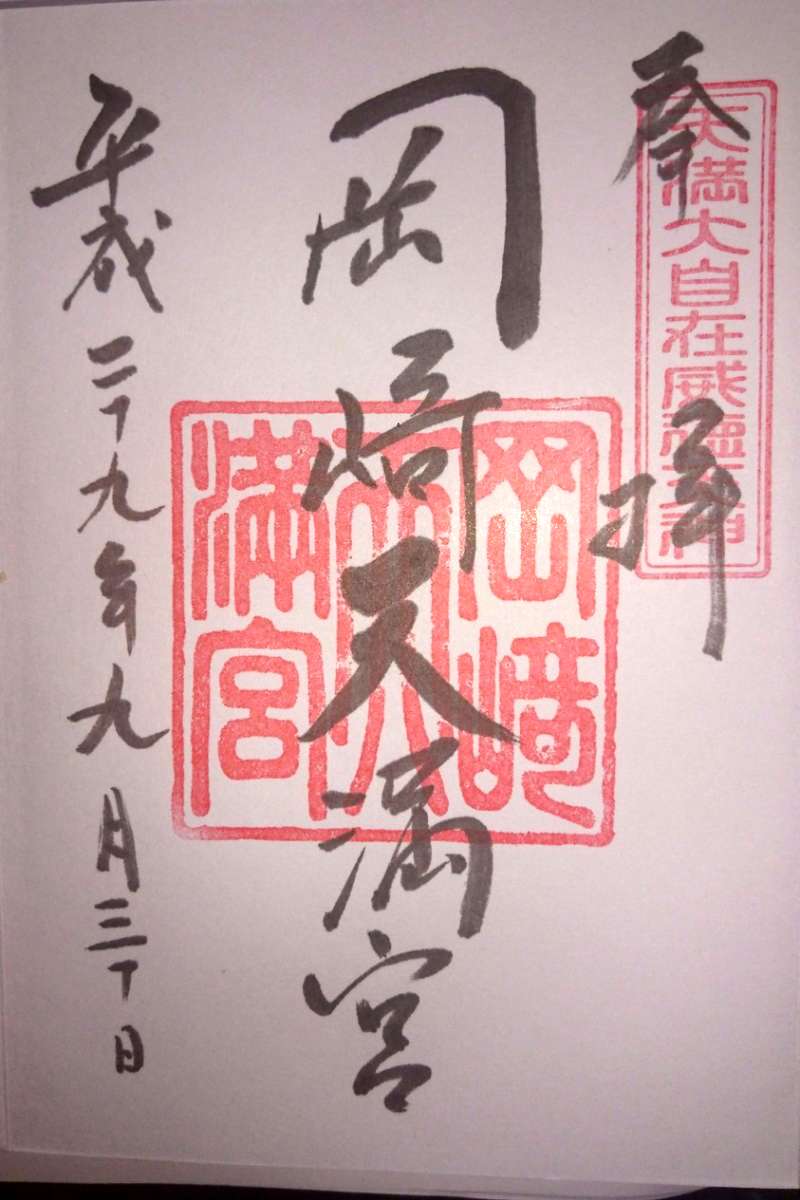 奉拝
天満大自在威徳天神
岡崎天満宮
岡崎天満宮
平成二十九年九月三十日